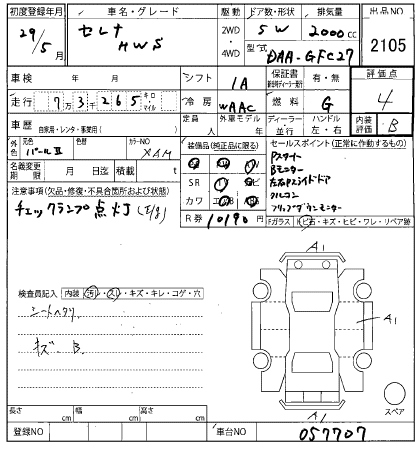 初度登録年月 車名・グレード 駆動 ドア数・形状 排気量 出品NO
29/5月 セレナ HWS 2WD・4WD 5W 2000cc 2105
型式 DAA-GFC27
車検 年 月 シフト IA 保証書 有・無 評価点
走行 7万3千265 キロ・マイル 冷房 WAAC 燃料 G 4
車歴 自家用・レンタ・事業用( ) 定員 人 外車モデル 年 ディーラー・並行 ハンドル 左・右 内装評価 B
外色 元色 パールⅡ 色替 カラーNO XAM
装備品(純正品に限る)
セールスポイント(正常に作動するもの)
名義変更期限 月 日迄 積載 t
SR
カワ
R券 10190 円
Pスタート
Bモニター
左右Pスライドドア
クルコン
フリップダウンモニター
Fガラス トビ石・キズ・ヒビ・ワレ・リペア跡
注意事項(欠品・修復・不具合箇所および状態)
チェックランプ点灯
検査員記入 内装 汚れ・スレ・キズ・キレ・コゲ・穴
シートヘタリ
キズ B
A1
A1
A1
スペア
長さ cm 幅 cm 高さ cm
登録NO 車台NO 057707